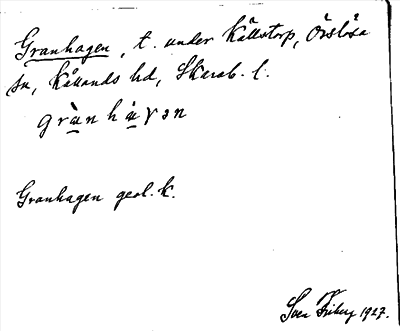 Granhagen, t. under Källstorp, Örslösa
sn, Kållands hd, Skarab. l.
grànhàγən
Granhagen geol. k.
Sven Friberg 1927.